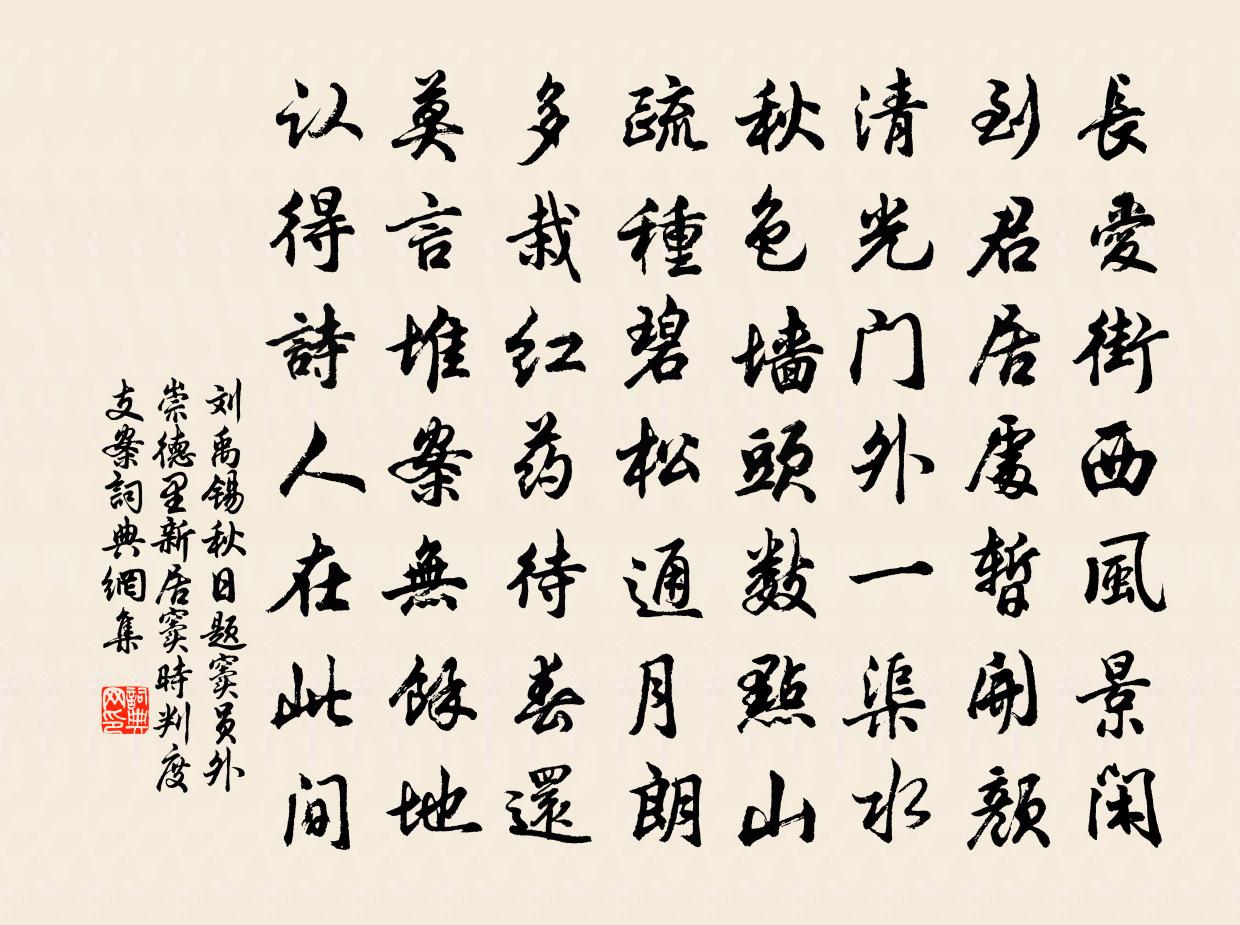 長愛街西風景閑
到君居處暫開顏
清光门外一渠水
秋色墙頭數點山
疏種碧松通月朗
多栽红药待春還
莫言堆案無餘地
认得詩人在此間
刘禹锡秋日题窦员外
崇德里新居窦時判度
支案詞典網集
詞典网印